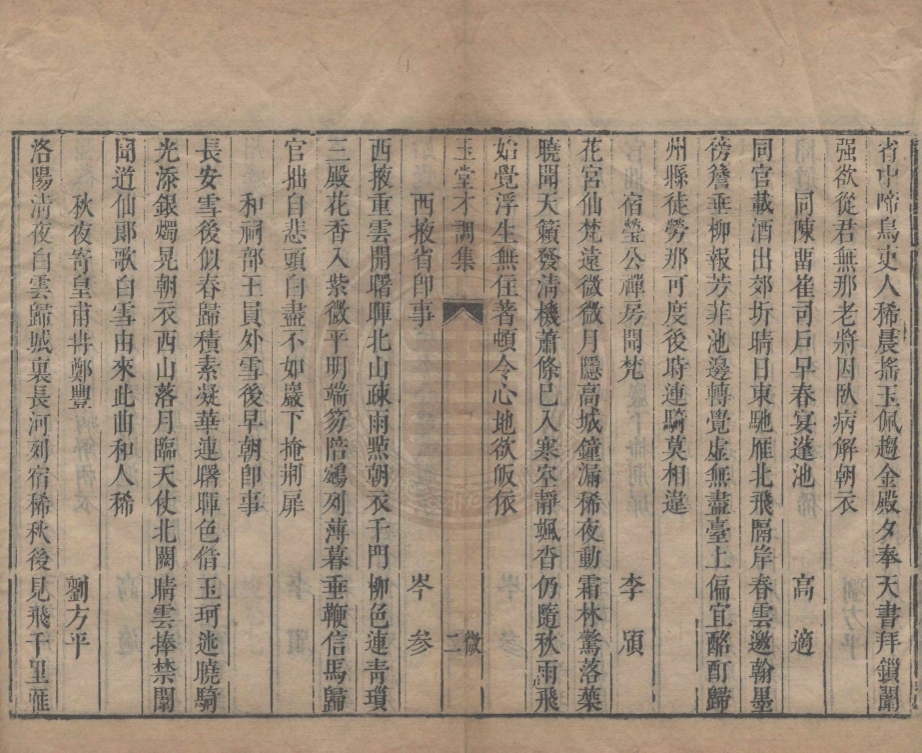 省中啼鳥吏人稀晨搖玉佩趨金殿夕奉天書拜鎖闈
强欲從君無那老將因臥病解朝衣
同陳畱崔司戶早春宴蓬池 高適
同官載酒出郊圻晴日東馳雁北飛隔岸春雲邀翰墨
傍簷垂柳報芳菲池邊轉覺虛無盡臺上偏宜酩酊歸
州縣徒勞那可度後時連騎莫相違
宿瑩公禪房聞梵 李頎
花宮仙梵遠微微月隱高城鐘漏稀夜動霜林驚落葉
曉聞天籟發清機蕭條已入寒空靜颯沓仍隨秋雨飛
始覺浮生無住著頓令心地欲皈依
玉堂才調集 微 二
西掖省卽事 岑參
西掖重雲開曙暉北山疎雨㸃朝衣千門柳色連青瑣
三殿花香入紫微平明端笏陪鵷列薄暮垂鞭信馬歸
官拙自悲頭白盡不如巖下掩荆扉
和祠部王員外雪後早朝卽事
長安雪後似春歸積素凝華連曙暉色借玉珂迷曉騎
光添銀燭晃朝衣西山落月臨天仗北闕晴雲捧禁闈
聞道仙郎歌白雪由來此曲和人稀
秋夜寄皇甫冉鄭豐 劉方平
洛陽清夜白雲歸城裏長河列宿稀秋後見飛千里雁